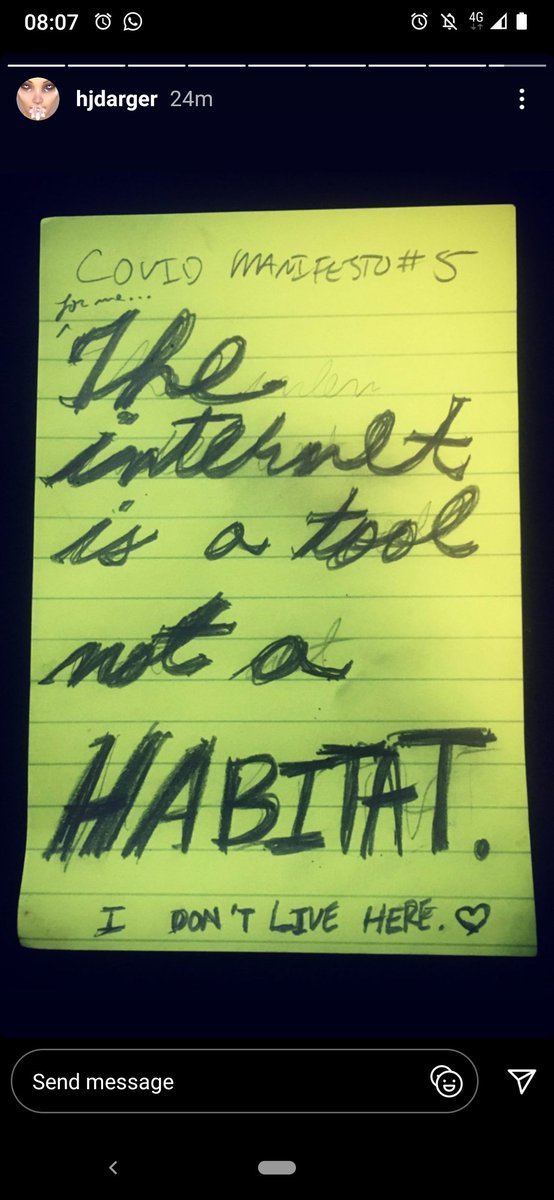 08:07
4G
hjdarger 24m
COVID MANIFESTO #5
for me...
The
internet
is a tool
not a
HABITAT.
I DON'T LIVE HERE. ♡
Send message